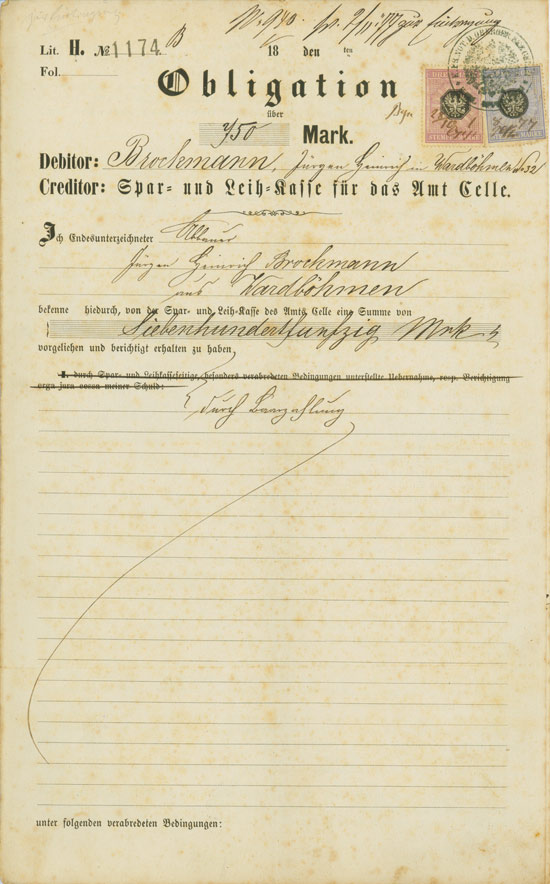 Lit. H. № 1174. B 18 den ten
Fol.
Obligation
über
750 Mark.
Debitor: Brockmann, Jürgen Heinrich in Wardböhmen No 32
Creditor: Spar- und Leih-Kasse für das Amt Celle.
Ich Endesunterzeichneter Abbauer
Jürgen Heinrich Brockmann
aus Wardböhmen
bekenne hiedurch, von der Spar- und Leih-Kasse des Amts Celle eine Summe von
Siebenhundertfunfzig Mark
vorgeliehen und berichtigt erhalten zu haben,
1. durch Spar- und Leihkasseseitige, besonders verabredeten Bedingungen unterstellte Uebernahme, resp. Berichtigung
meiner Schuld:
durch Baarzahlung
unter folgenden verabredeten Bedingungen: